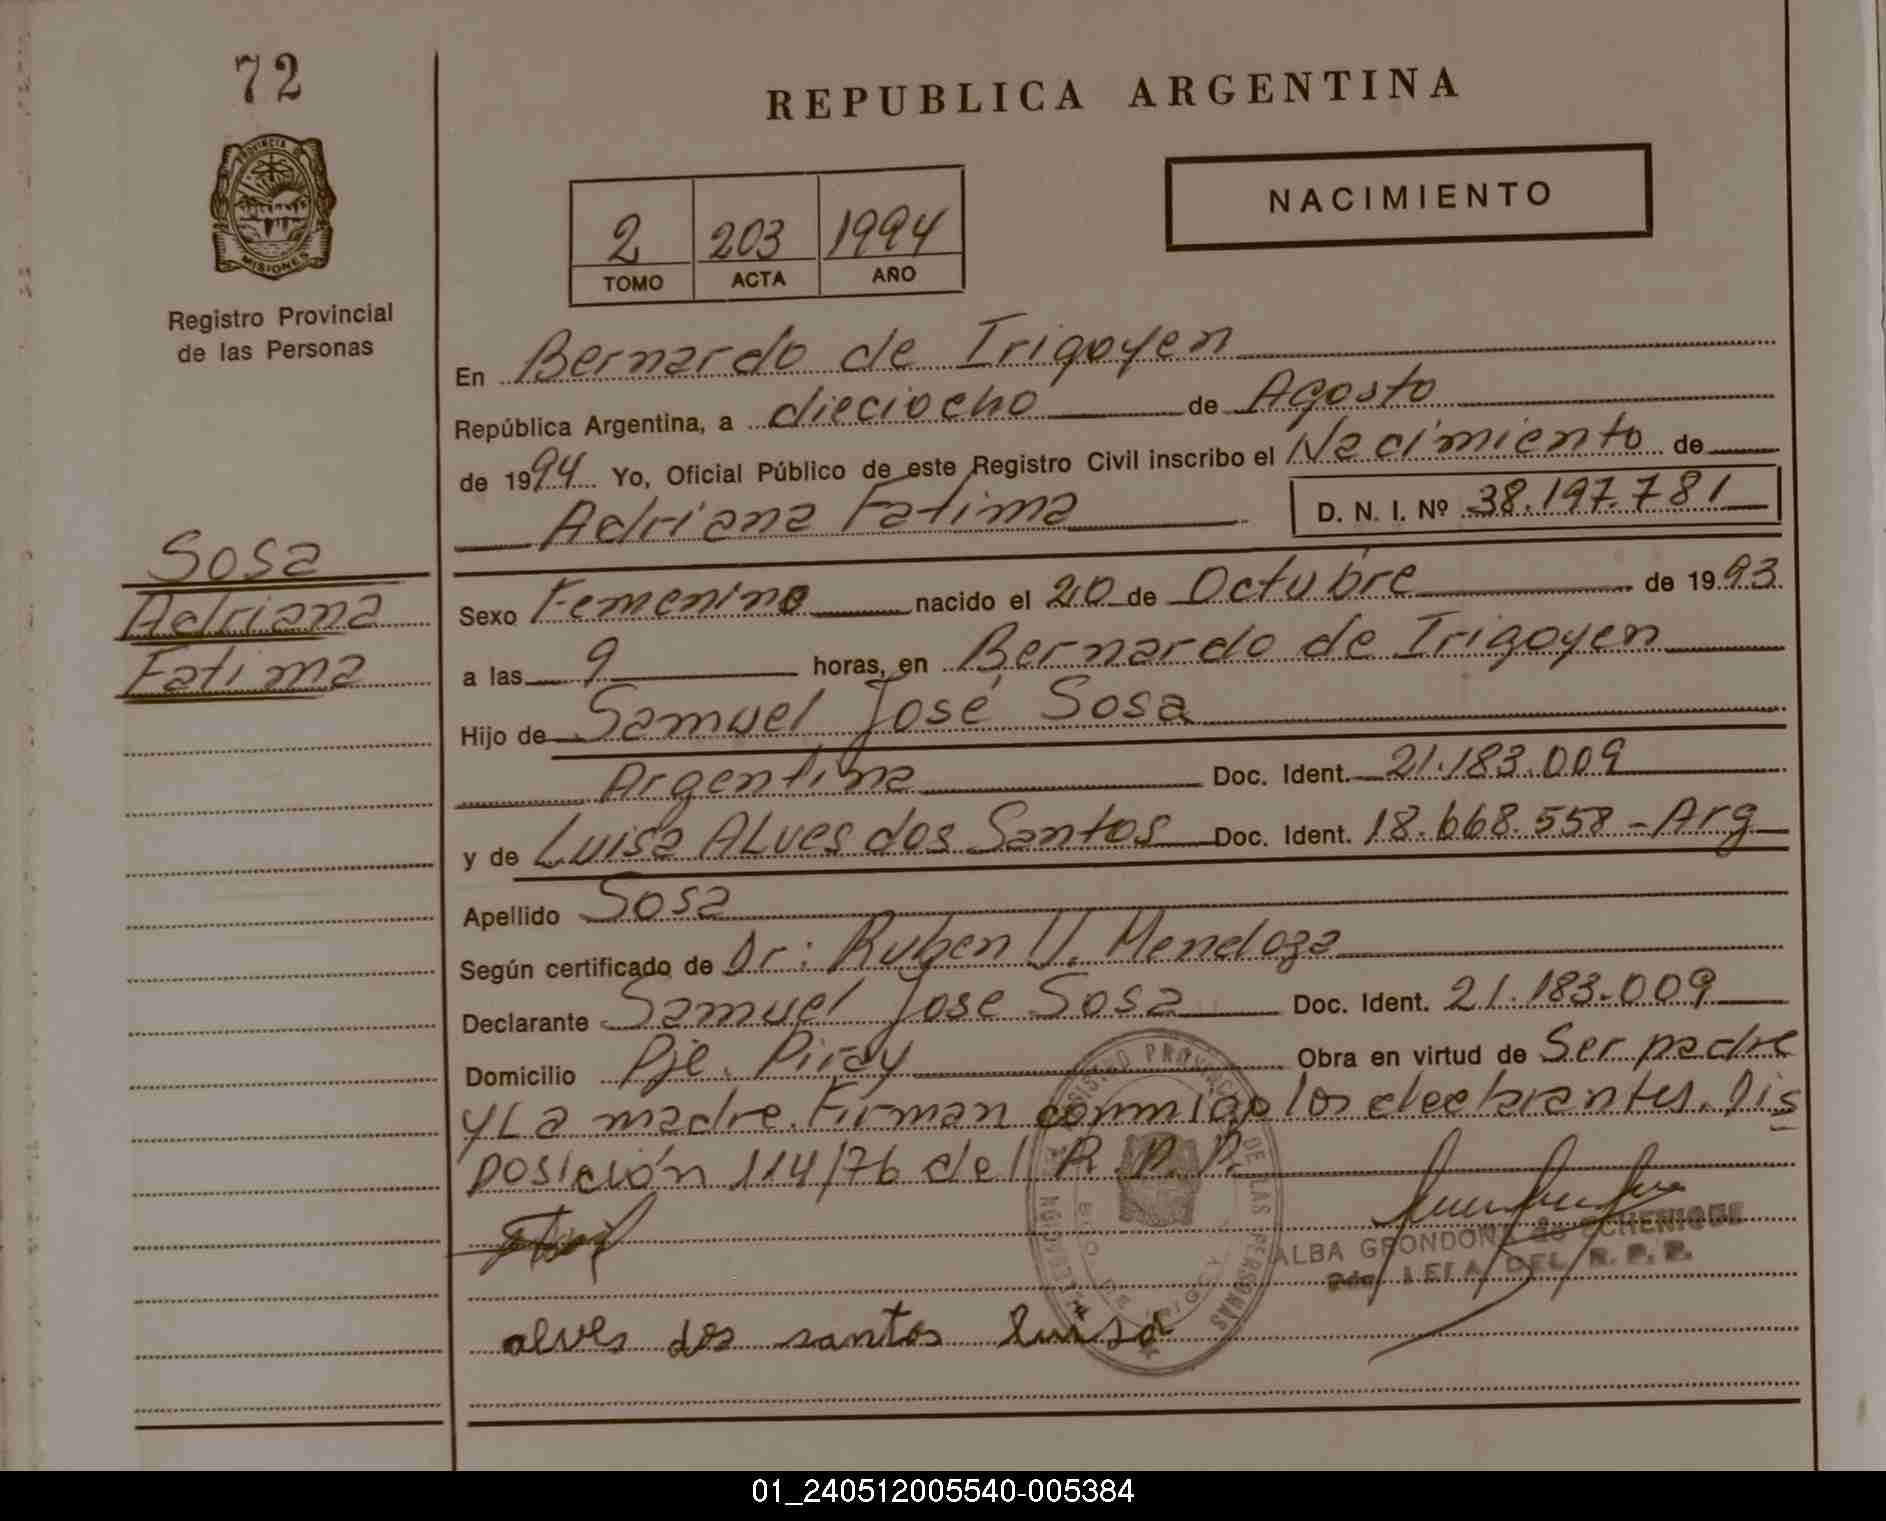 72
PROVINCIA DE
MISIONES
Registro Provincial
de las Personas
Sosa
Adriana
Fatima
REPUBLICA ARGENTINA
NACIMIENTO
2 203 1994
TOMO ACTA AÑO
En Bernardo de Irigoyen
República Argentina, a dieciocho de Agosto
de 1994 Yo, Oficial Público de este Registro Civil inscribo el Nacimiento de
Adriana Fatima D. N. I. Nº 38.197.781
Sexo Femenino nacido el 20 de Octubre de 1993
a las 9 horas, en Bernardo de Irigoyen
Hijo de Samuel José Sosa
Argentina Doc. Ident. 21.183.009
y de Luisa ALves dos Santos Doc. Ident. 18.668.558 - Arg
Apellido Sosa
Según certificado de Dr: Ruben U. Mendoza
Declarante Samuel Jose Sosa Doc. Ident. 21.183.009
Domicilio Pje. Piray Obra en virtud de Ser padre
y La madre. Firman conmigo los declarantes. Dis
posición 114/76 del R.P.P.
REGISTRO PROVINCIAL DE LAS PERSONAS
ALBA GRONDONA de ECHENIQUE
DEL R. P. P.
alves dos santos luisa
01_240512005540-005384